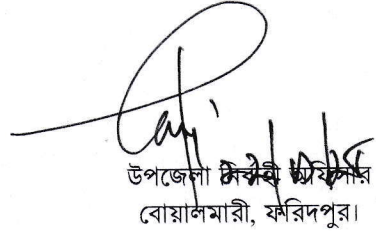 উপজেলা নির্বাহী অফিসার
বোয়ালমারী, ফরিদপুর।